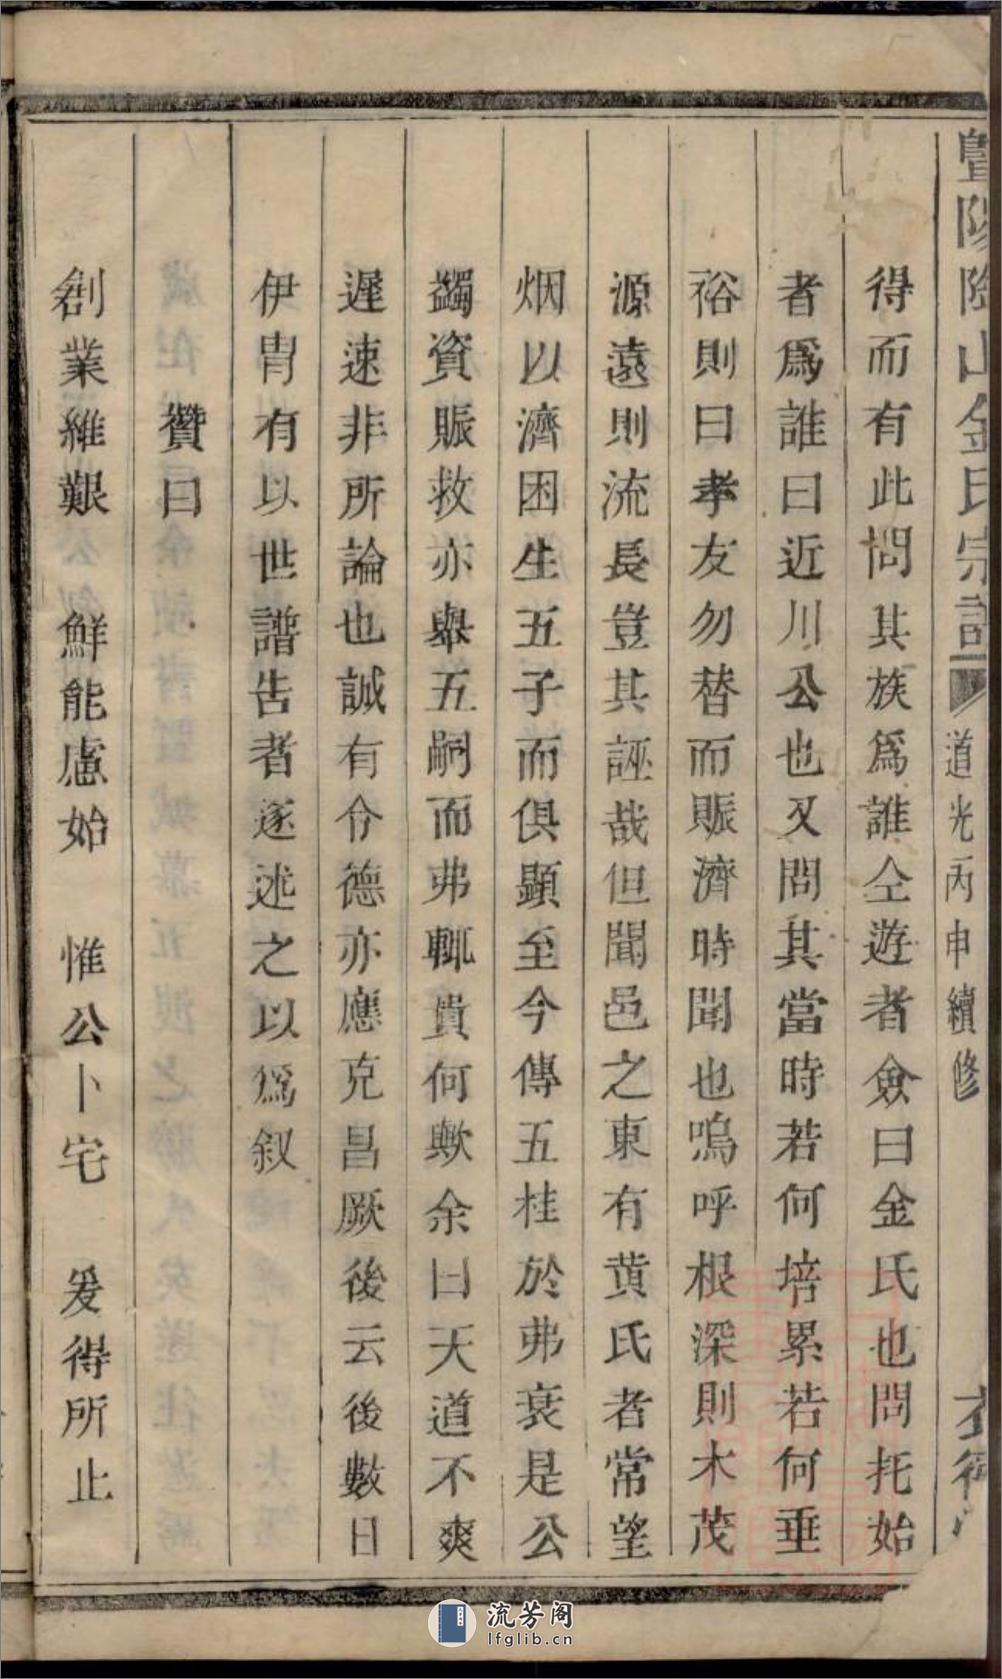 暨陽陰山金氏宗譜
道光丙申續修
得而有此問其族爲誰仝遊者僉曰金氏也問托始
者爲誰曰近川公也又問其當時若何培累若何垂
裕則曰孝友勿替而賑濟時聞也嗚呼根深則木茂
源遠則流長豈其誣哉但聞邑之東有黄氏者常望
烟以濟困生五子而俱顯至今傳五桂於弗衰是公
蠲資賑救亦舉五嗣而弗輒貴何歟余曰天道不爽
遲速非所論也誠有令德亦應克昌厥後云後數日
伊胄有以世譜告者遂述之以爲叙
贊曰
創業維艱 鮮能慮始 惟公卜宅 爰得所止
流芳阁
lfglib.cn